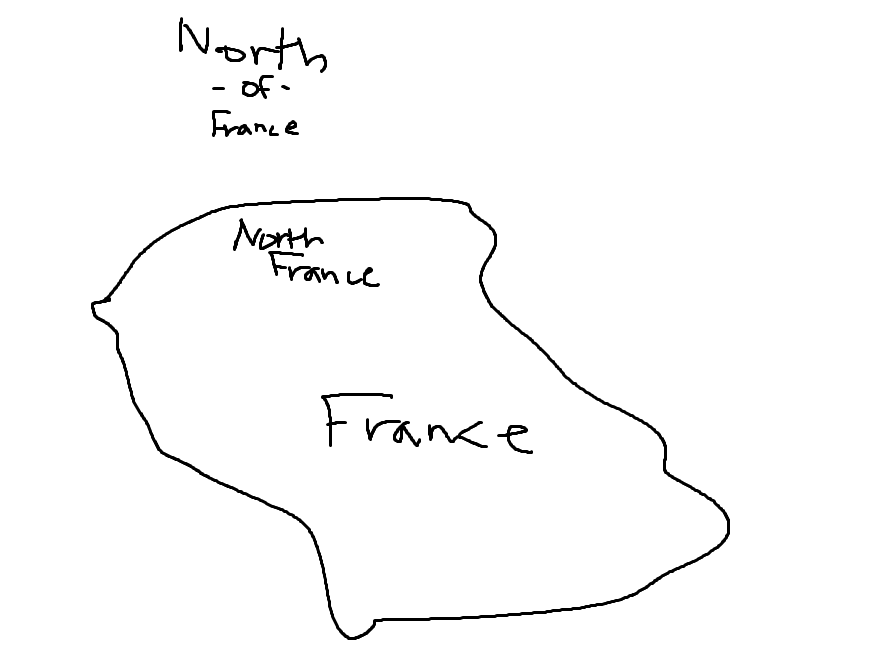 North
- of -
France
North
France
France